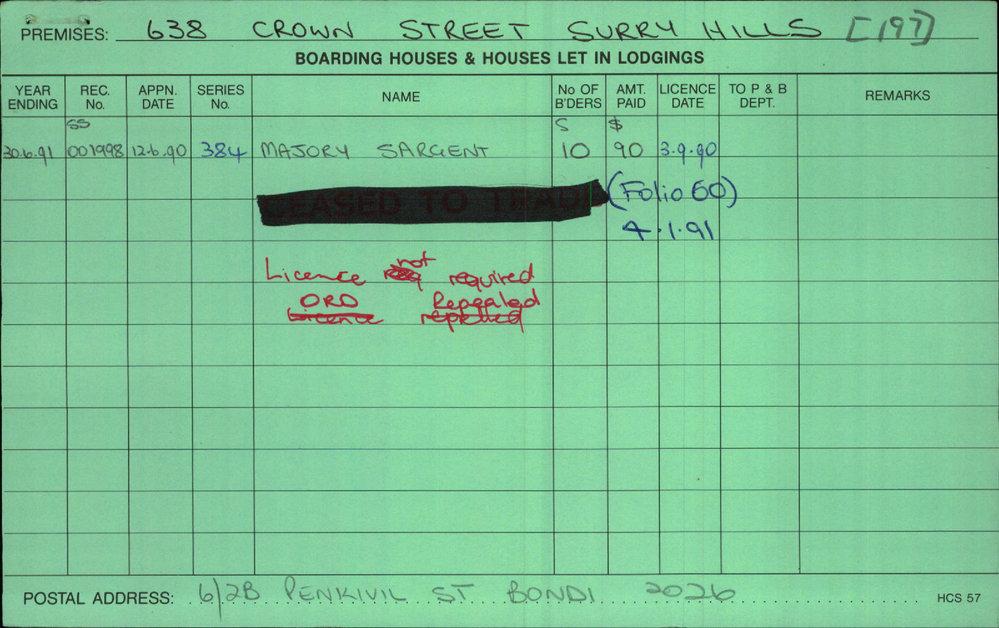 PREMISES: 638 CROWN STREET SURRY HILLS [197]
BOARDING HOUSES & HOUSES LET IN LODGINGS
YEAR ENDING REC. No. APPN. DATE SERIES No. NAME No OF B'DERS AMT. PAID LICENCE DATE TO P & B DEPT. REMARKS
SS S $
30.6.91 001998 12.6.90 384 MAJORY SARGENT 10 90 3.9.90
CEASED TO TRADE (Folio 60)
4.1.91
Licence not required
ORD Repealed
Licence repelled
POSTAL ADDRESS: 6/2B PENKIVIL ST BONDI 2026 HCS 57